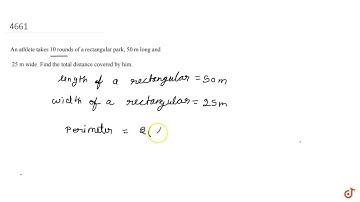 4661
An athlete takes 10 rounds of a rectangular park, 50 m long and
25 m wide. Find the total distance covered by him.
length of a rectangular = 50m
width of a rectangular = 25m
Perimeter = 2(